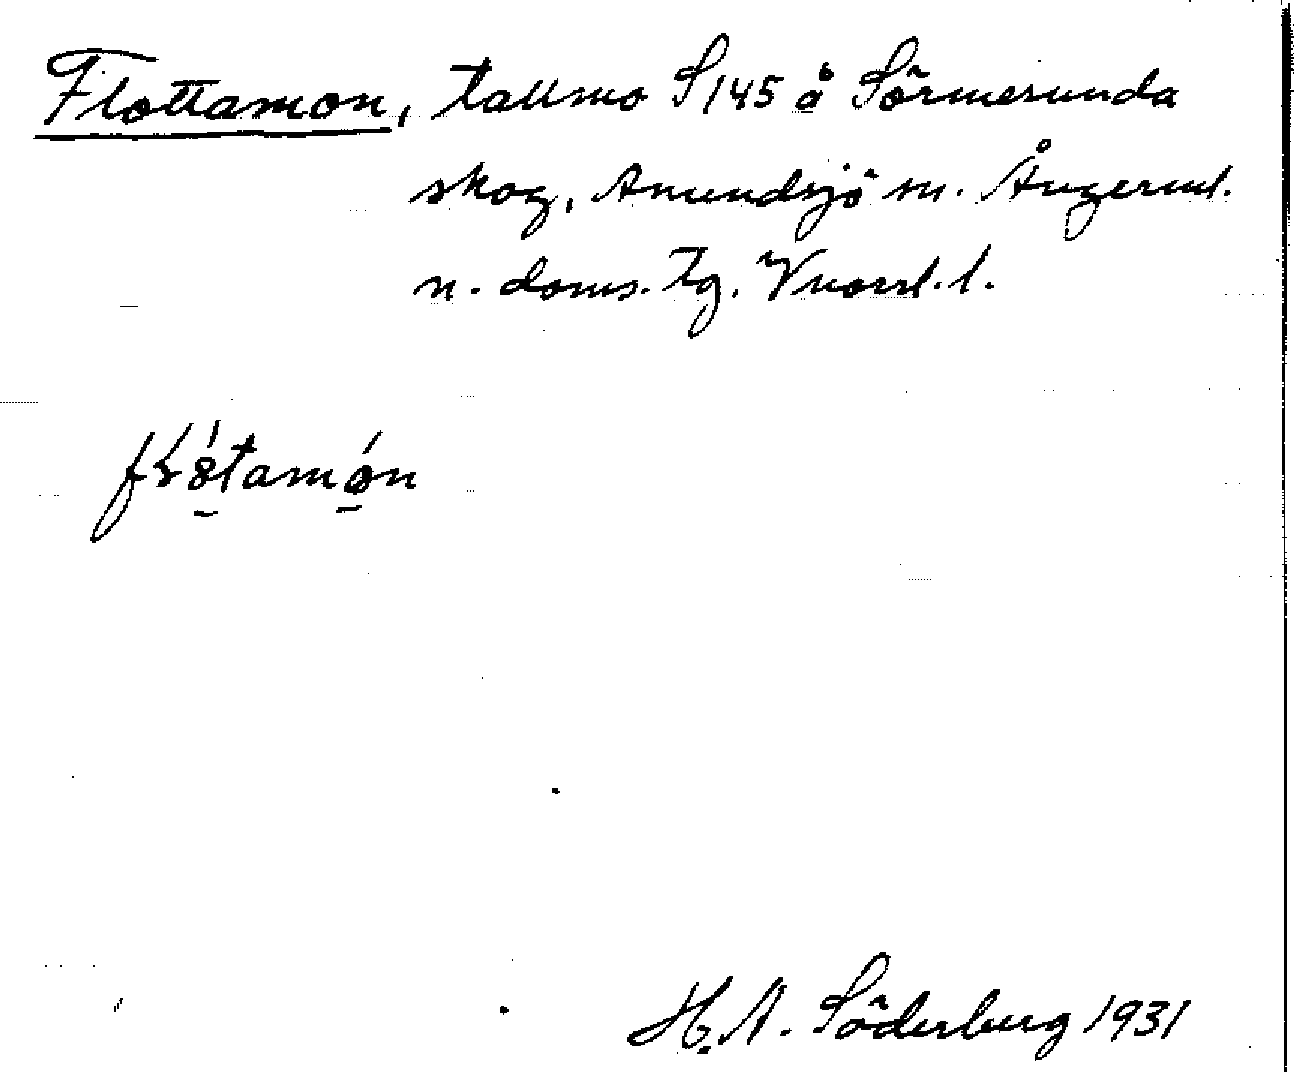 Flottamon, tallmo S 145 å Sörmesunda
skog, Anundsjö sn. Ångerml.
n. doms. tg. Vnorrl. l.
H. A. Söderberg 1931